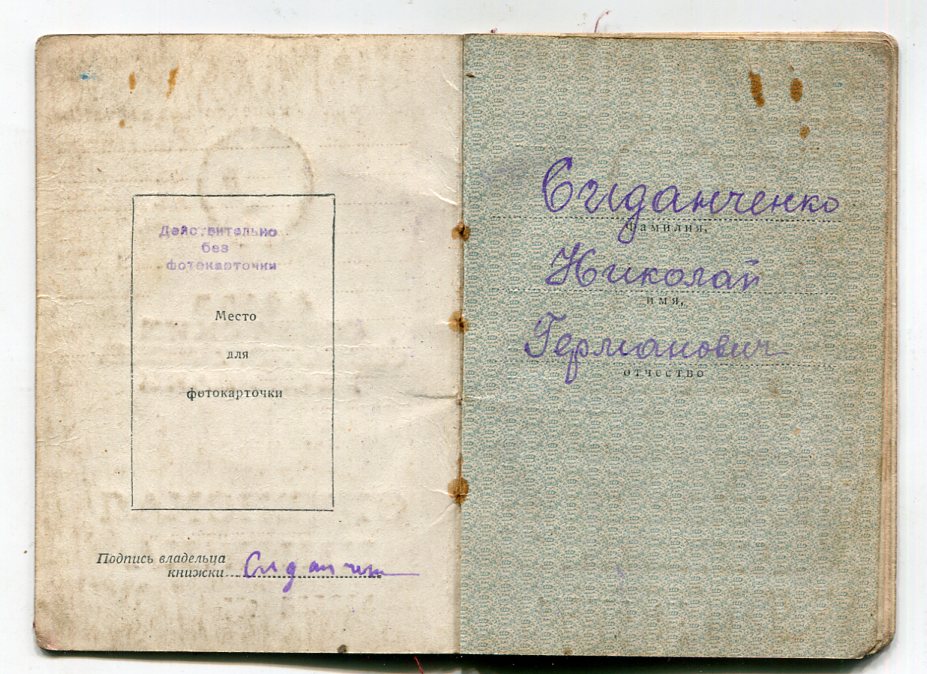 Действительно
без
фотокарточки
Место
для
фотокарточки
Подпись владельца
книжки Сиданчен
Сиданченко
фамилия,
Николай
имя,
Германович
отчество